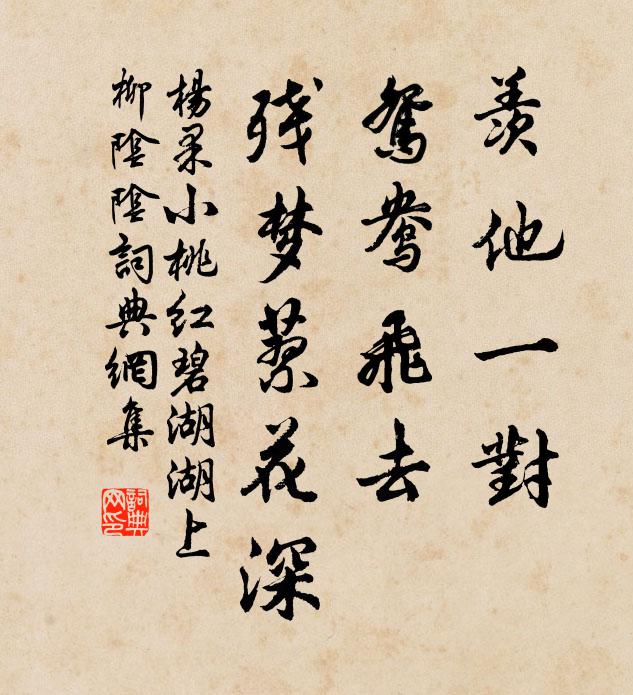 羨他一對
鴛鴦飛去
残梦蓼花深
楊果小桃紅碧湖湖上
柳陰陰詞典網集
詞典网印